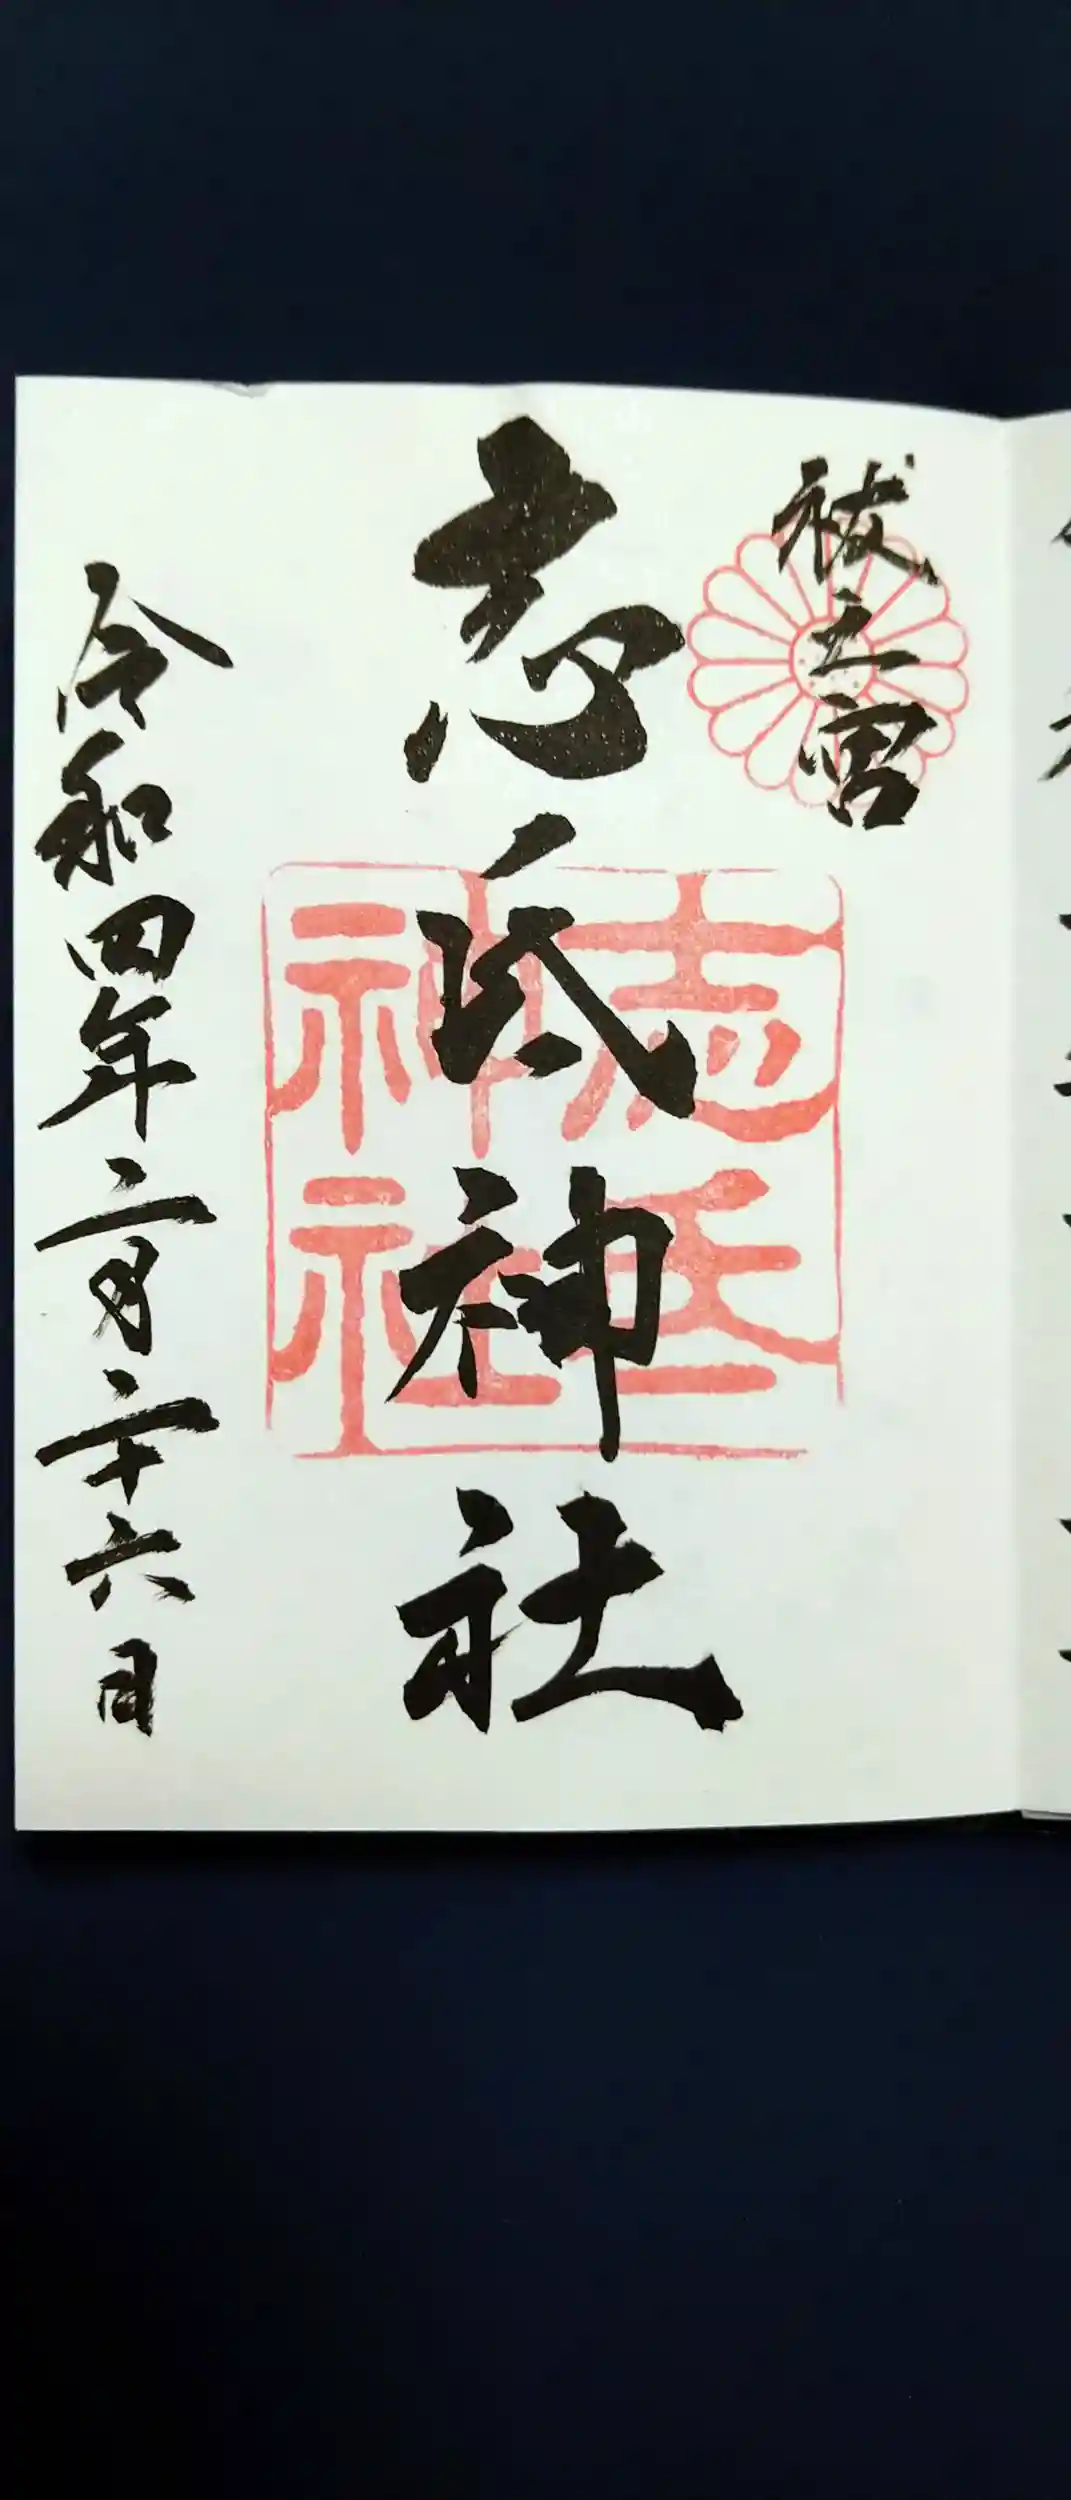 祓之宮
志氐神社
志氐神社
令和四年二月二十六日